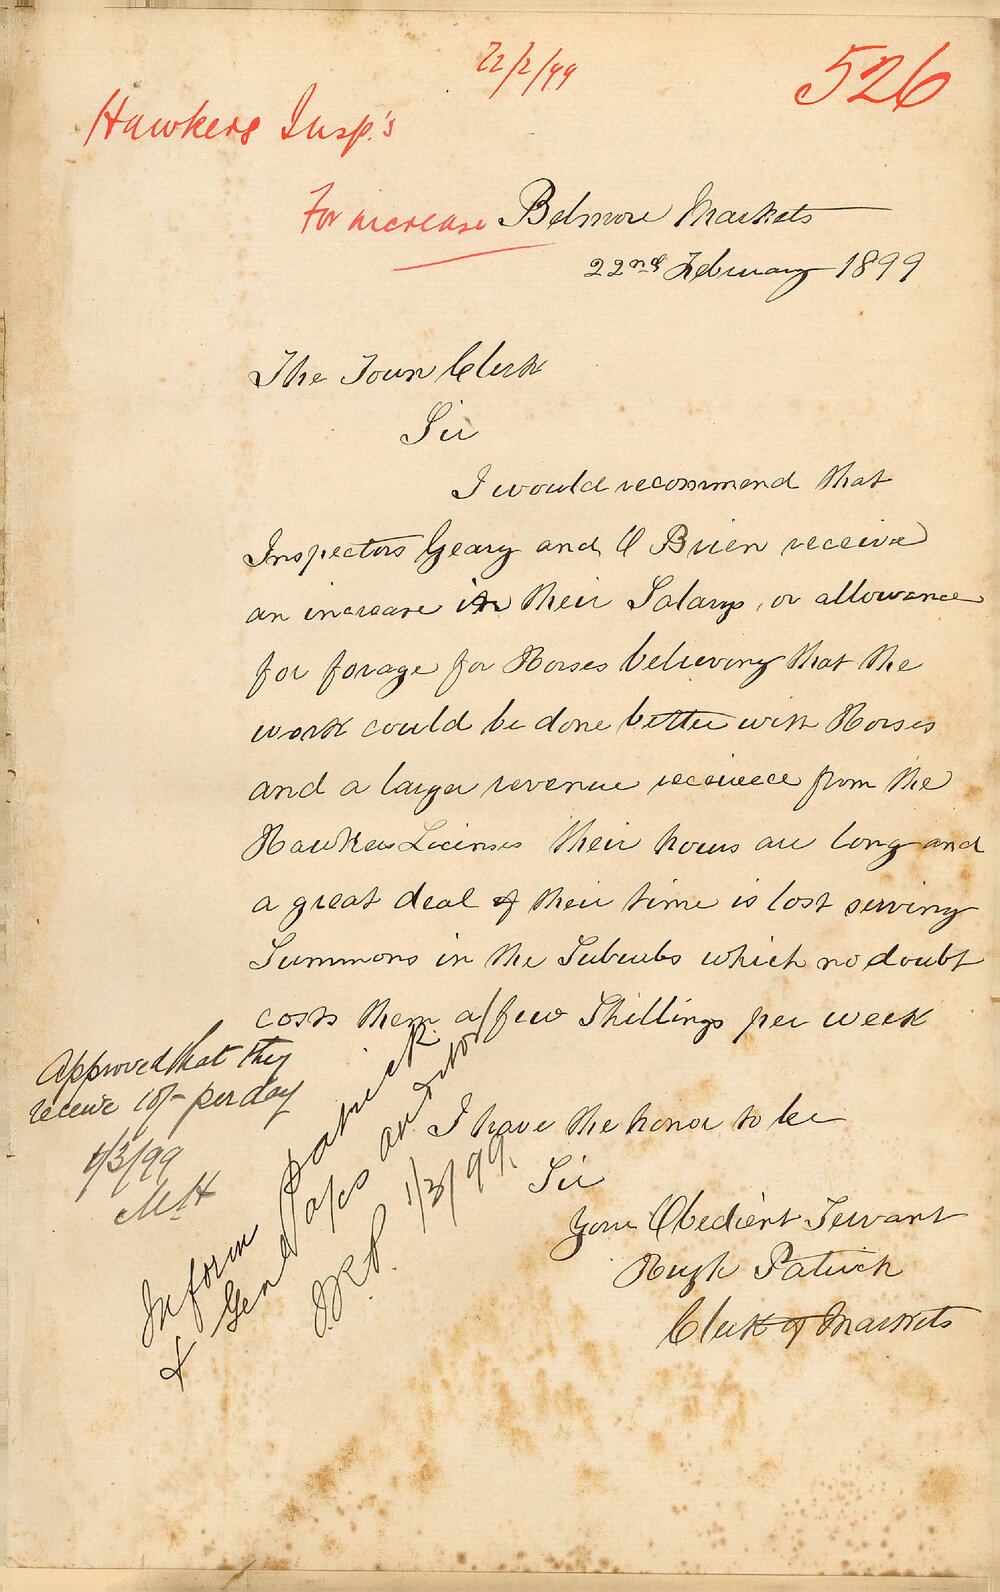 22/2/99
526
Hawkers Insp.'s
For increase
Belmore Markets
22nd February 1899
The Town Clerk
Sir
I would recommend that
Inspectors Geary and O Brien receive
an increase in their Salary, or allowance
for forage for Horses believing that the
work could be done better with Horses
and a larger revenue received from the
Hawkers Licenses their hours are long and
a great deal of their time is lost serving
Summons in the Suburbs which no doubt
costs them a few Shillings per week
I have the honor to be
Sir
Your Obedient Servant
Hugh Patrick
Clerk of Markets
Approved that they
receive 10/- per day
1/3/99
Inform Patrick
& Genl o/cs auditor
1/3/99.